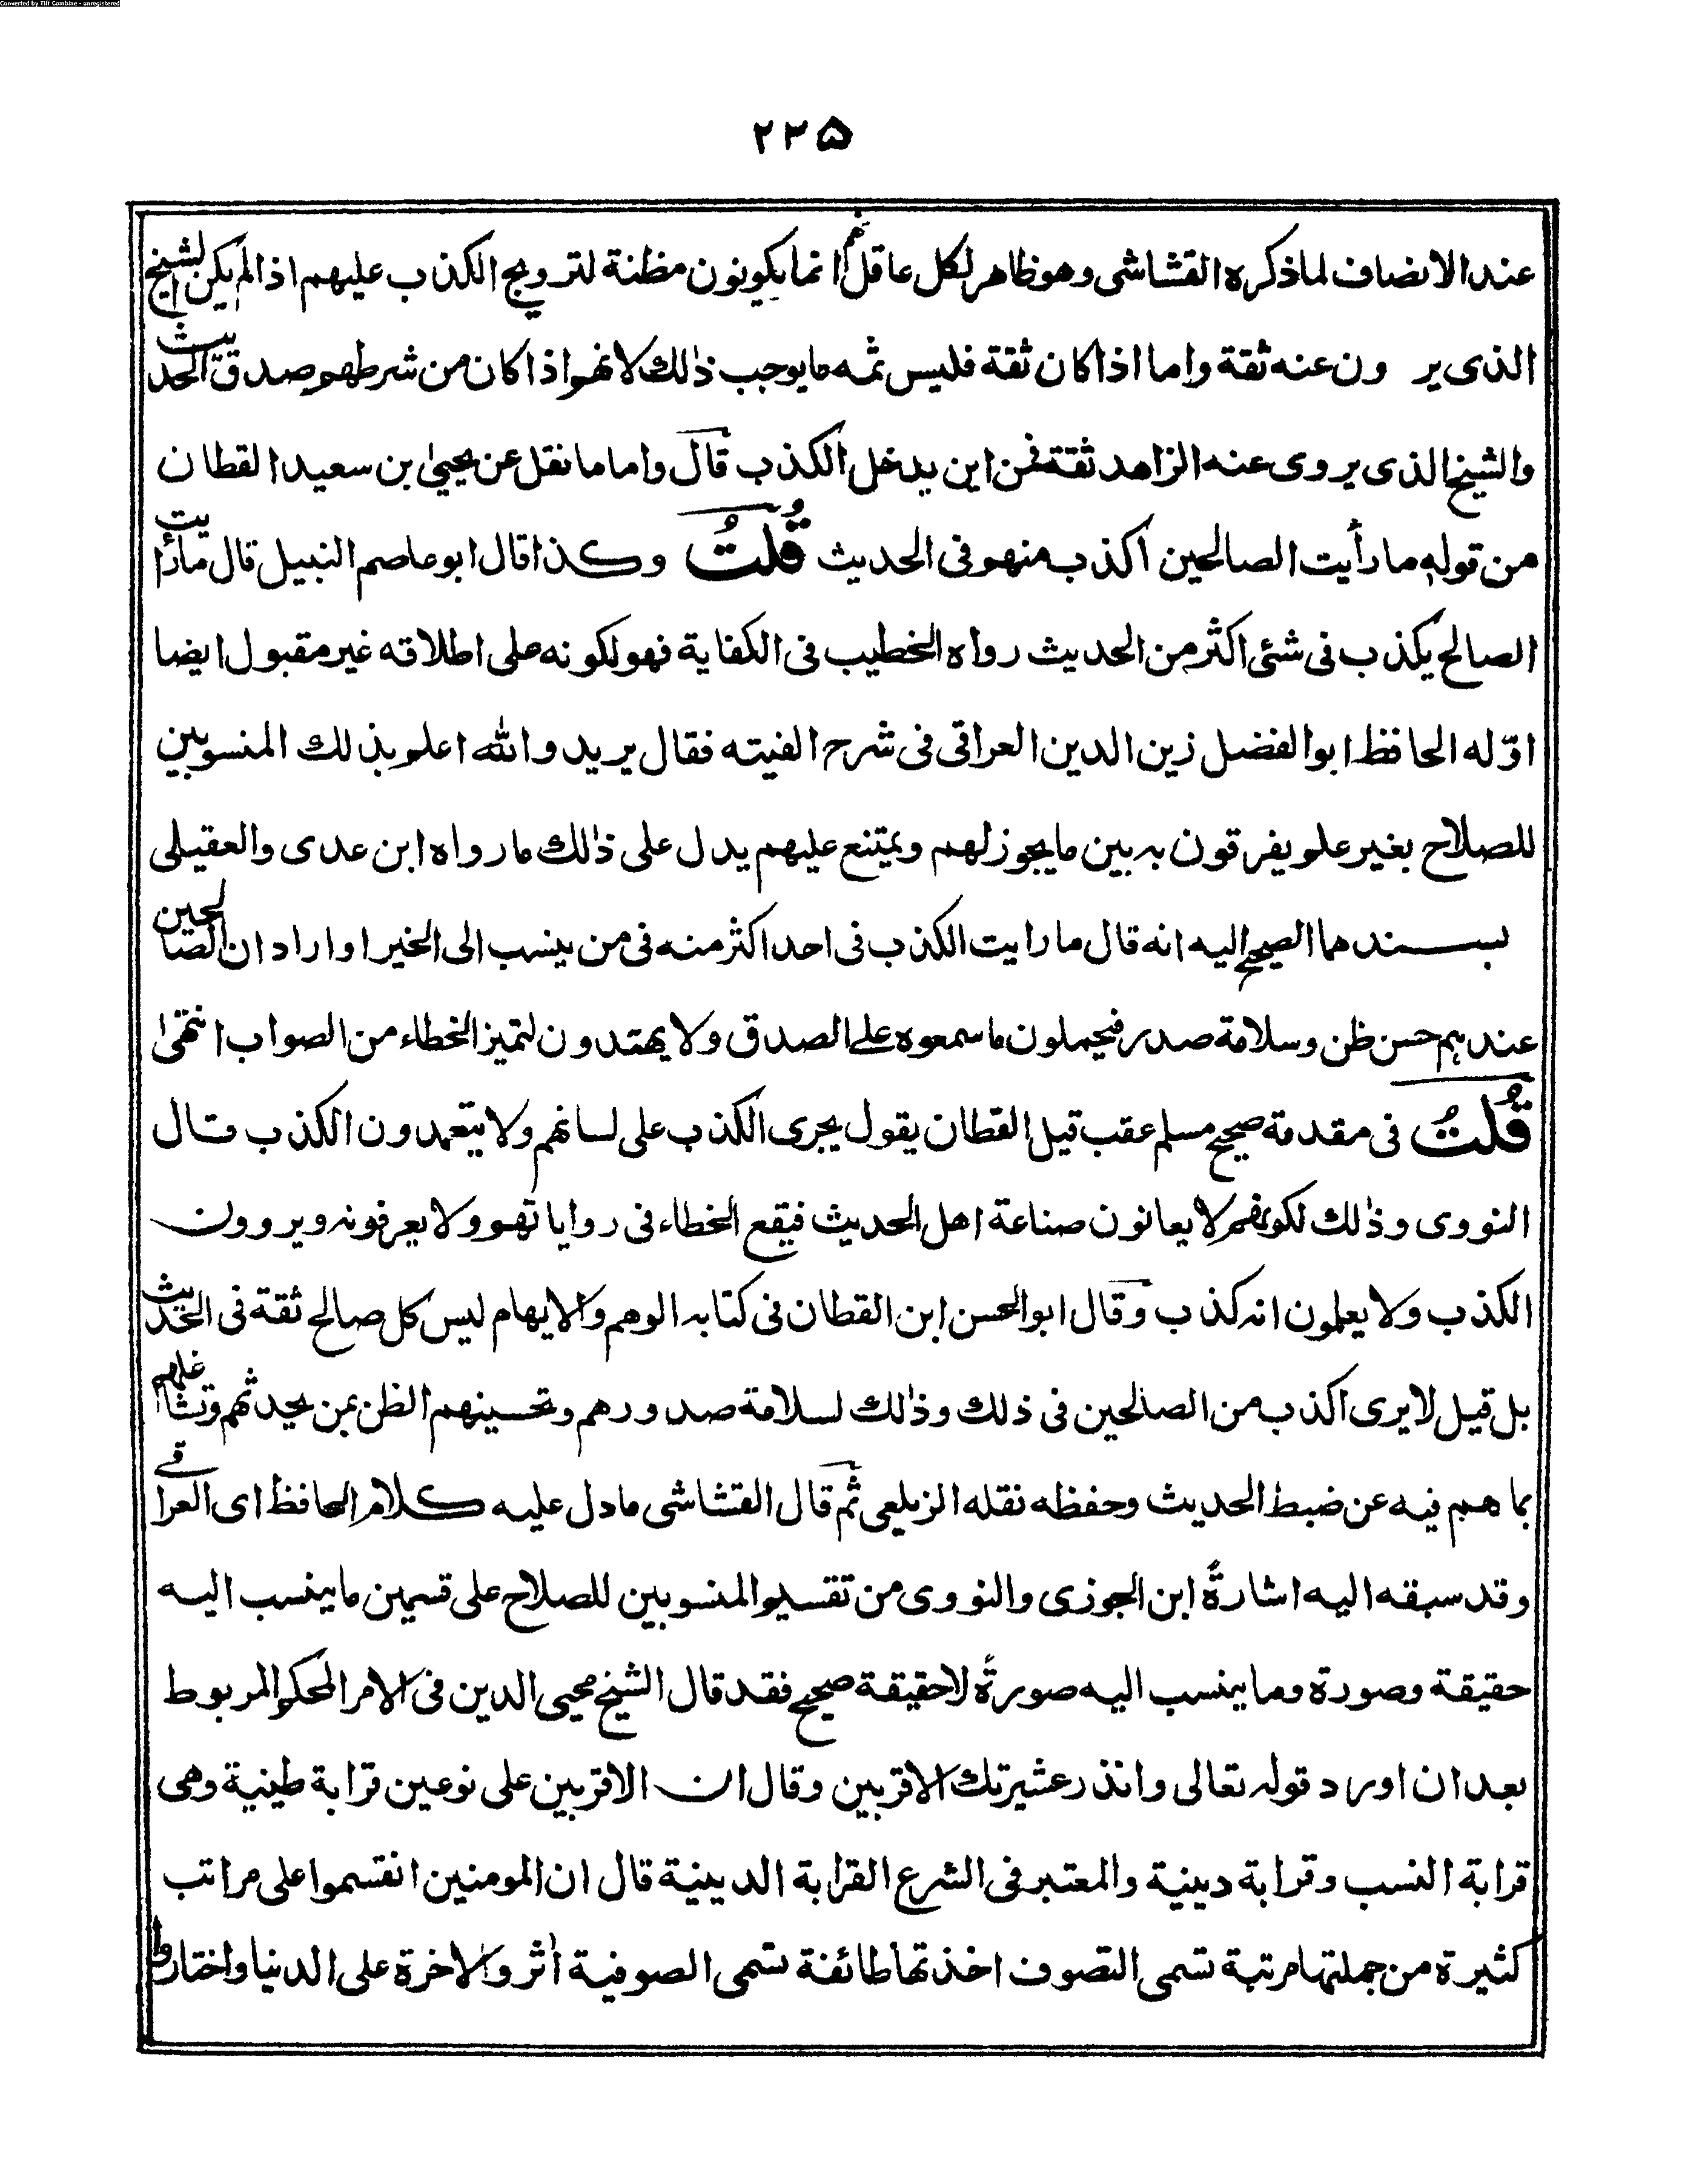 Converted by Tiff Combine - unregistered
٢٣۵
عند الانصاف لما ذكره القشاشى وهو ظاهر لكل عاقل انهم انما يكونون مظنة لترويج الكذب عليهم اذا لم يكن الشيخ
الذى ير ون عنه ثقة واما اذا كان ثقة فليس ثمه ما يوجب ذٰلك لانهم اذا كان من شرطهم صدق الحديث
والشيخ الذى يروى عنه الزاهد ثقة فمن اين يدخل الكذب قال واما ما نقل عن يحيىٰ بن سعيد القطان
من قوله ما رأيت الصالحين اكذب منهم فى الحديث قُلتُ وكذا قال ابو عاصم النبيل قال ما رأيت
الصالح يكذب فى شئى اكثر من الحديث رواه الخطيب فى الكفاية فهو لكونه على اطلاقه غير مقبول ايضا
اوّله الحافظ ابو الفضل زين الدين العراقى فى شرح الفيته فقال يريد والله اعلم بذلك المنسوبين
للصلاح بغير علم يفرقون به بين ما يجوز لهم ويمتنع عليهم يدل على ذٰلك ما رواه ابن عدى والعقيلى
بسندهما الصحيح اليه انه قال ما رايت الكذب فى احد اكثر منه فى من ينسب الى الخير او اراد ان الصالحين
عندهم حسن ظن وسلامة صدر فيحملون ما سمعوه على الصدق ولا يهتدون لتميز الخطاء من الصواب انتهىٰ
قُلتُ فى مقدمة صحيح مسلم عقب قيل القطان يقول يجرى الكذب على لسانهم ولا يتعمدون الكذب قال
النووى وذٰلك لكونهم لا يعانون صناعة اهل الحديث فيقع الخطاء فى رواياتهم ولا يعرفونه ويروون
الكذب ولا يعلمون انه كذب وقال ابو الحسن ابن القطان فى كتابه الوهم والايهام ليس كل صالح ثقة فى الحديث
بل قيل لا يرى اكذب من الصالحين فى ذلك وذٰلك لسلامة صدورهم وتحسينهم الظن بمن يحدثهم وتشاغلهم
بما هم فيه عن ضبط الحديث وحفظه نقله الزيلعى ثم قال القشاشى ما دل عليه كلام الحافظ اى العراقے
وقد سبقه اليه اشارةً ابن الجوزى والنووى من تقسيم المنسوبين للصلاح على قسمين ما ينسب اليه
حقيقة وصورة وما ينسب اليه صورةً لا حقيقة صحيح فقد قال الشيخ محيى الدين فى الامر المحكم المربوط
بعد ان اورد قوله تعالى وانذر عشيرتك الاقربين وقال ان الاقربين على نوعين قرابة طينية وهى
قرابة النسب وقرابة دينية والمعتبر فى الشرع القرابة الدينية قال ان المومنين انقسموا على مراتب
كثيرة من جملتها مرتبة تسمى التصوف اخذتها طائفة تسمى الصوفية أثروا الاخرة على الدنيا واختاروا